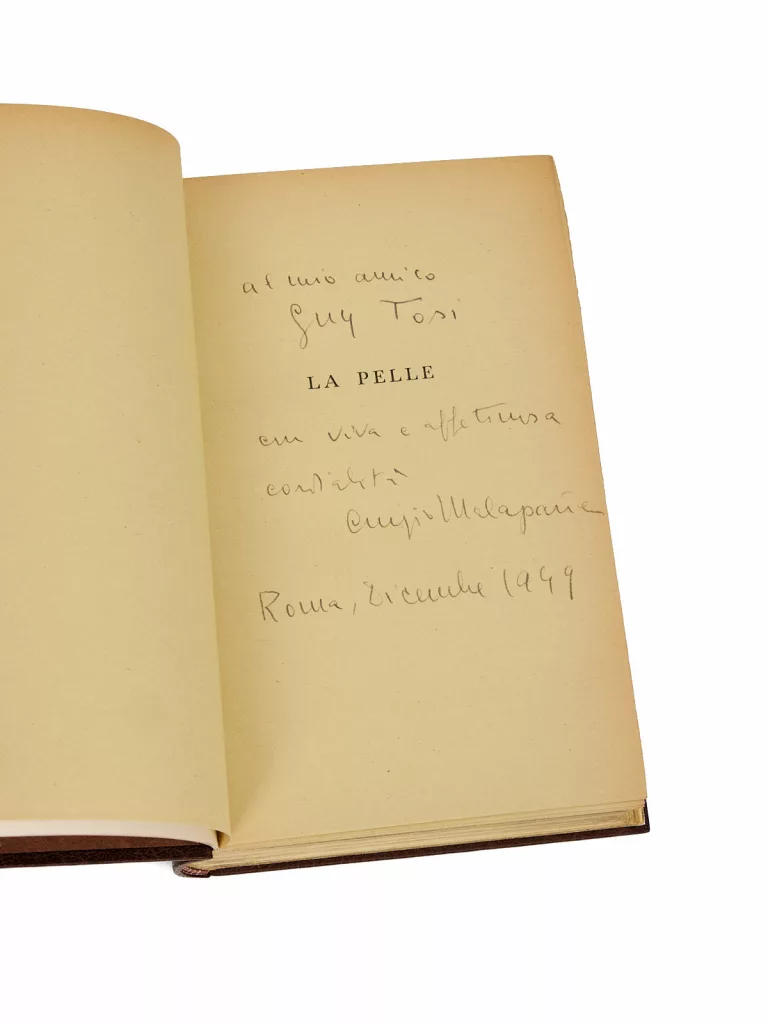 al mio amico
Guy Tosi
LA PELLE
con viva e affettuosa
cordialità
Curzio Malaparte
Roma, dicembre 1949